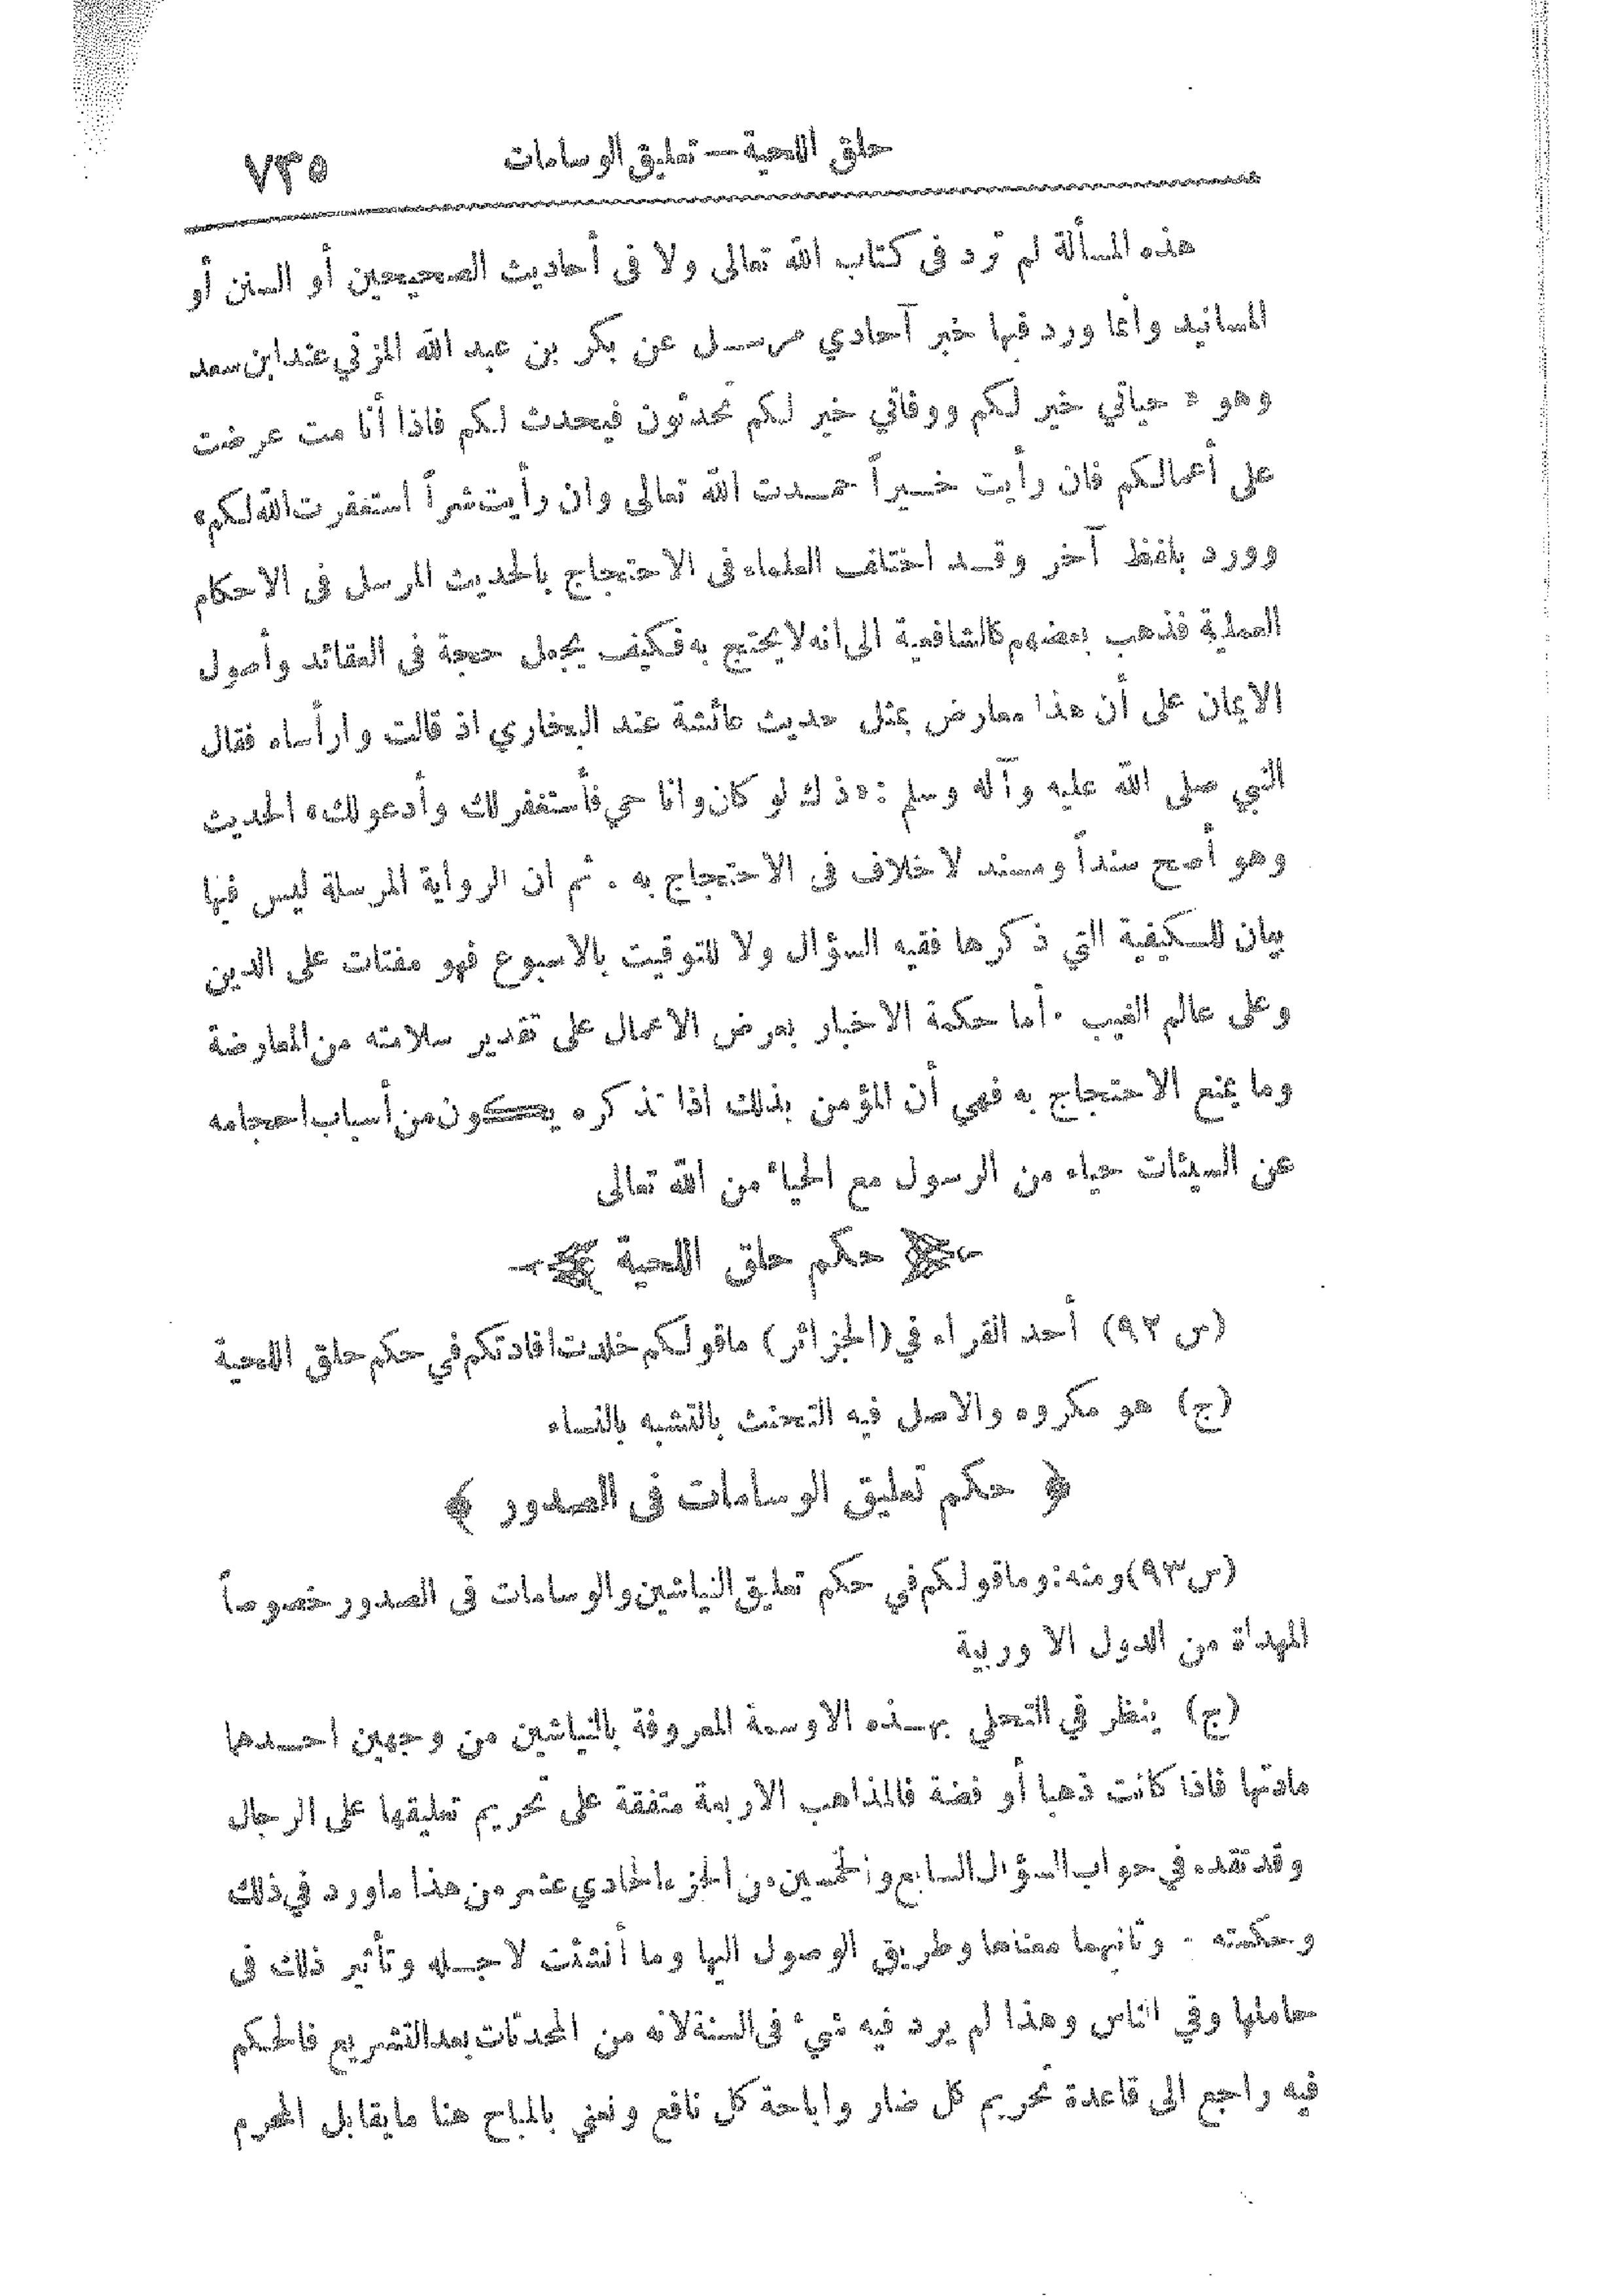 حلق اللحية — تعليق الوسامات ٧٣٥
هذه المسألة لم ترد فى كتاب الله تعالى ولا فى أحاديث الصحيحين أو السنن أو
المسانيد وانما ورد فيها خبر آحادي مرســل عن بكر بن عبد الله المزني عند ابن سعد
وهو « حياتي خير لكم ووفاتي خير لكم تحدثون فيحدث لكم فاذا أنا مت عرضت
على أعمالكم فان رأيت خــيراً حمــدت الله تعالى وان رأيت شراً استغفرت الله لكم»
وورد بلفظ آخر وقــد اختلف العلماء فى الاحتجاج بالحديث المرسل فى الاحكام
العملية فذهب بعضهم كالشافعية الى انه لا يحتج به فكيف يجعل حجة فى العقائد وأصول
الايمان على أن هذا معارض بمثل حديث عائشة عند البخاري اذ قالت وارأساه فقال
النبي صلى الله عليه وآله وسلم : «ذك لو كان وانا حي فأستغفر لك وأدعو لك» الحديث
وهو أصح سنداً ومسند لا خلاف فى الاحتجاج به . ثم ان الرواية المرسلة ليس فيها
بيان للكيفية التي ذكرها فقيه السؤال ولا للتوقيت بالاسبوع فهو مفتات على الدين
وعلى عالم الغيب . أما حكمة الاخبار بعرض الاعمال على تقدير سلامته من المعارضة
وما يمنع الاحتجاج به فهي أن المؤمن بذلك اذا تذكره يكون من أسباب احجامه
عن السيئات حياء من الرسول مع الحياء من الله تعالى
حكم حلق اللحية
(س ٩٢) أحد القراء في (الجزائر) ما قولكم خلدت افادتكم في حكم حلق اللحية
(ج) هو مكروه والاصل فيه التخنث بالتشبه بالنساء
﴿ حكم تعليق الوسامات فى الصدور ﴾
(س٩٣) ومنه: وما قولكم في حكم تعليق النياشين والوسامات فى الصدور خصوصاً
المهداة من الدول الاوربية
(ج) ينظر في التحلي بهــذه الاوسمة المعروفة بالنياشين من وجهين احــدها
مادتها فاذا كانت ذهبا أو فضة فالمذاهب الاربعة متفقة على تحريم تعليقها على الرجال
وقد تقدم في جواب السؤال السابع والخمسين من الجزء الحادي عشر من هذا ما ورد في ذلك
وحكمته - وثانيهما معناها وطريق الوصول اليها وما أنشئت لاجــله وتأثير ذلك فى
حاملها وفي الناس وهذا لم يرد فيه شيء فى السنة لانه من المحدثات بعد التشريع فالحكم
فيه راجع الى قاعدة تحريم كل ضار واباحة كل نافع ونعني بالمباح هنا ما يقابل المحرم